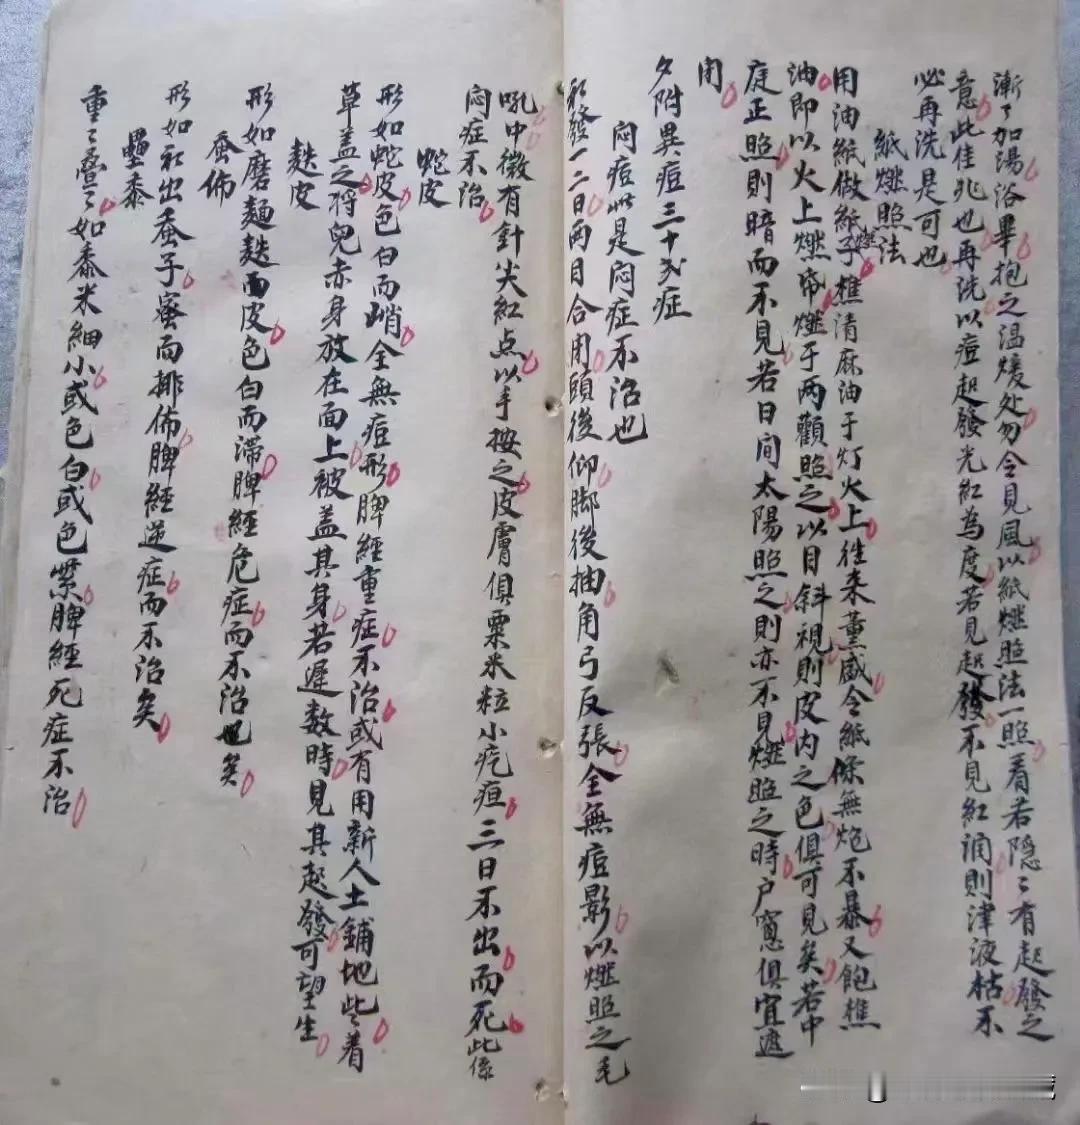 漸〻加湯浴畢抱之温煖处勿令見風以紙燃照法一照看若隐〻有起發之
意此佳兆也再洗以痘起發光紅為度若見起發不見紅潤則津液枯不
必再洗是可也
紙燃照法
用油紙做紙燃子樵清麻油于灯火上徃来薰盛令紙條無炮不暴又飽樵
油即以火上燃帋燃于两顴照之以目斜視則皮内之色俱可見矣若中
庭正照則暗而不見若日間太陽照之則亦不見燃照之時户窓俱宜遮
闭
夕附異痘三十弐症
闷痘此是闷症不治也
初發一二日两目合闭頭後仰脚後抽角弓反張全無痘影以燃照之毛
吼中微有針尖紅点以手按之皮膚俱粟米粒小疙疸三日不出而死此係
闷症不治
蛇皮
形如蛇皮色白而峭全無痘形脾經重症不治或有用新人土鋪地些着
草盖之将兒赤身放在面上被盖其身若遲数時見其起發可望生
麩皮
形如磨麺麩面皮色白而滞脾經危症而不治也矣
蚕佈
形如初出蚕子蜜而排佈脾經逆症而不治矣
壘黍
重〻疊〻如黍米細小或色白或色紫脾經死症不治